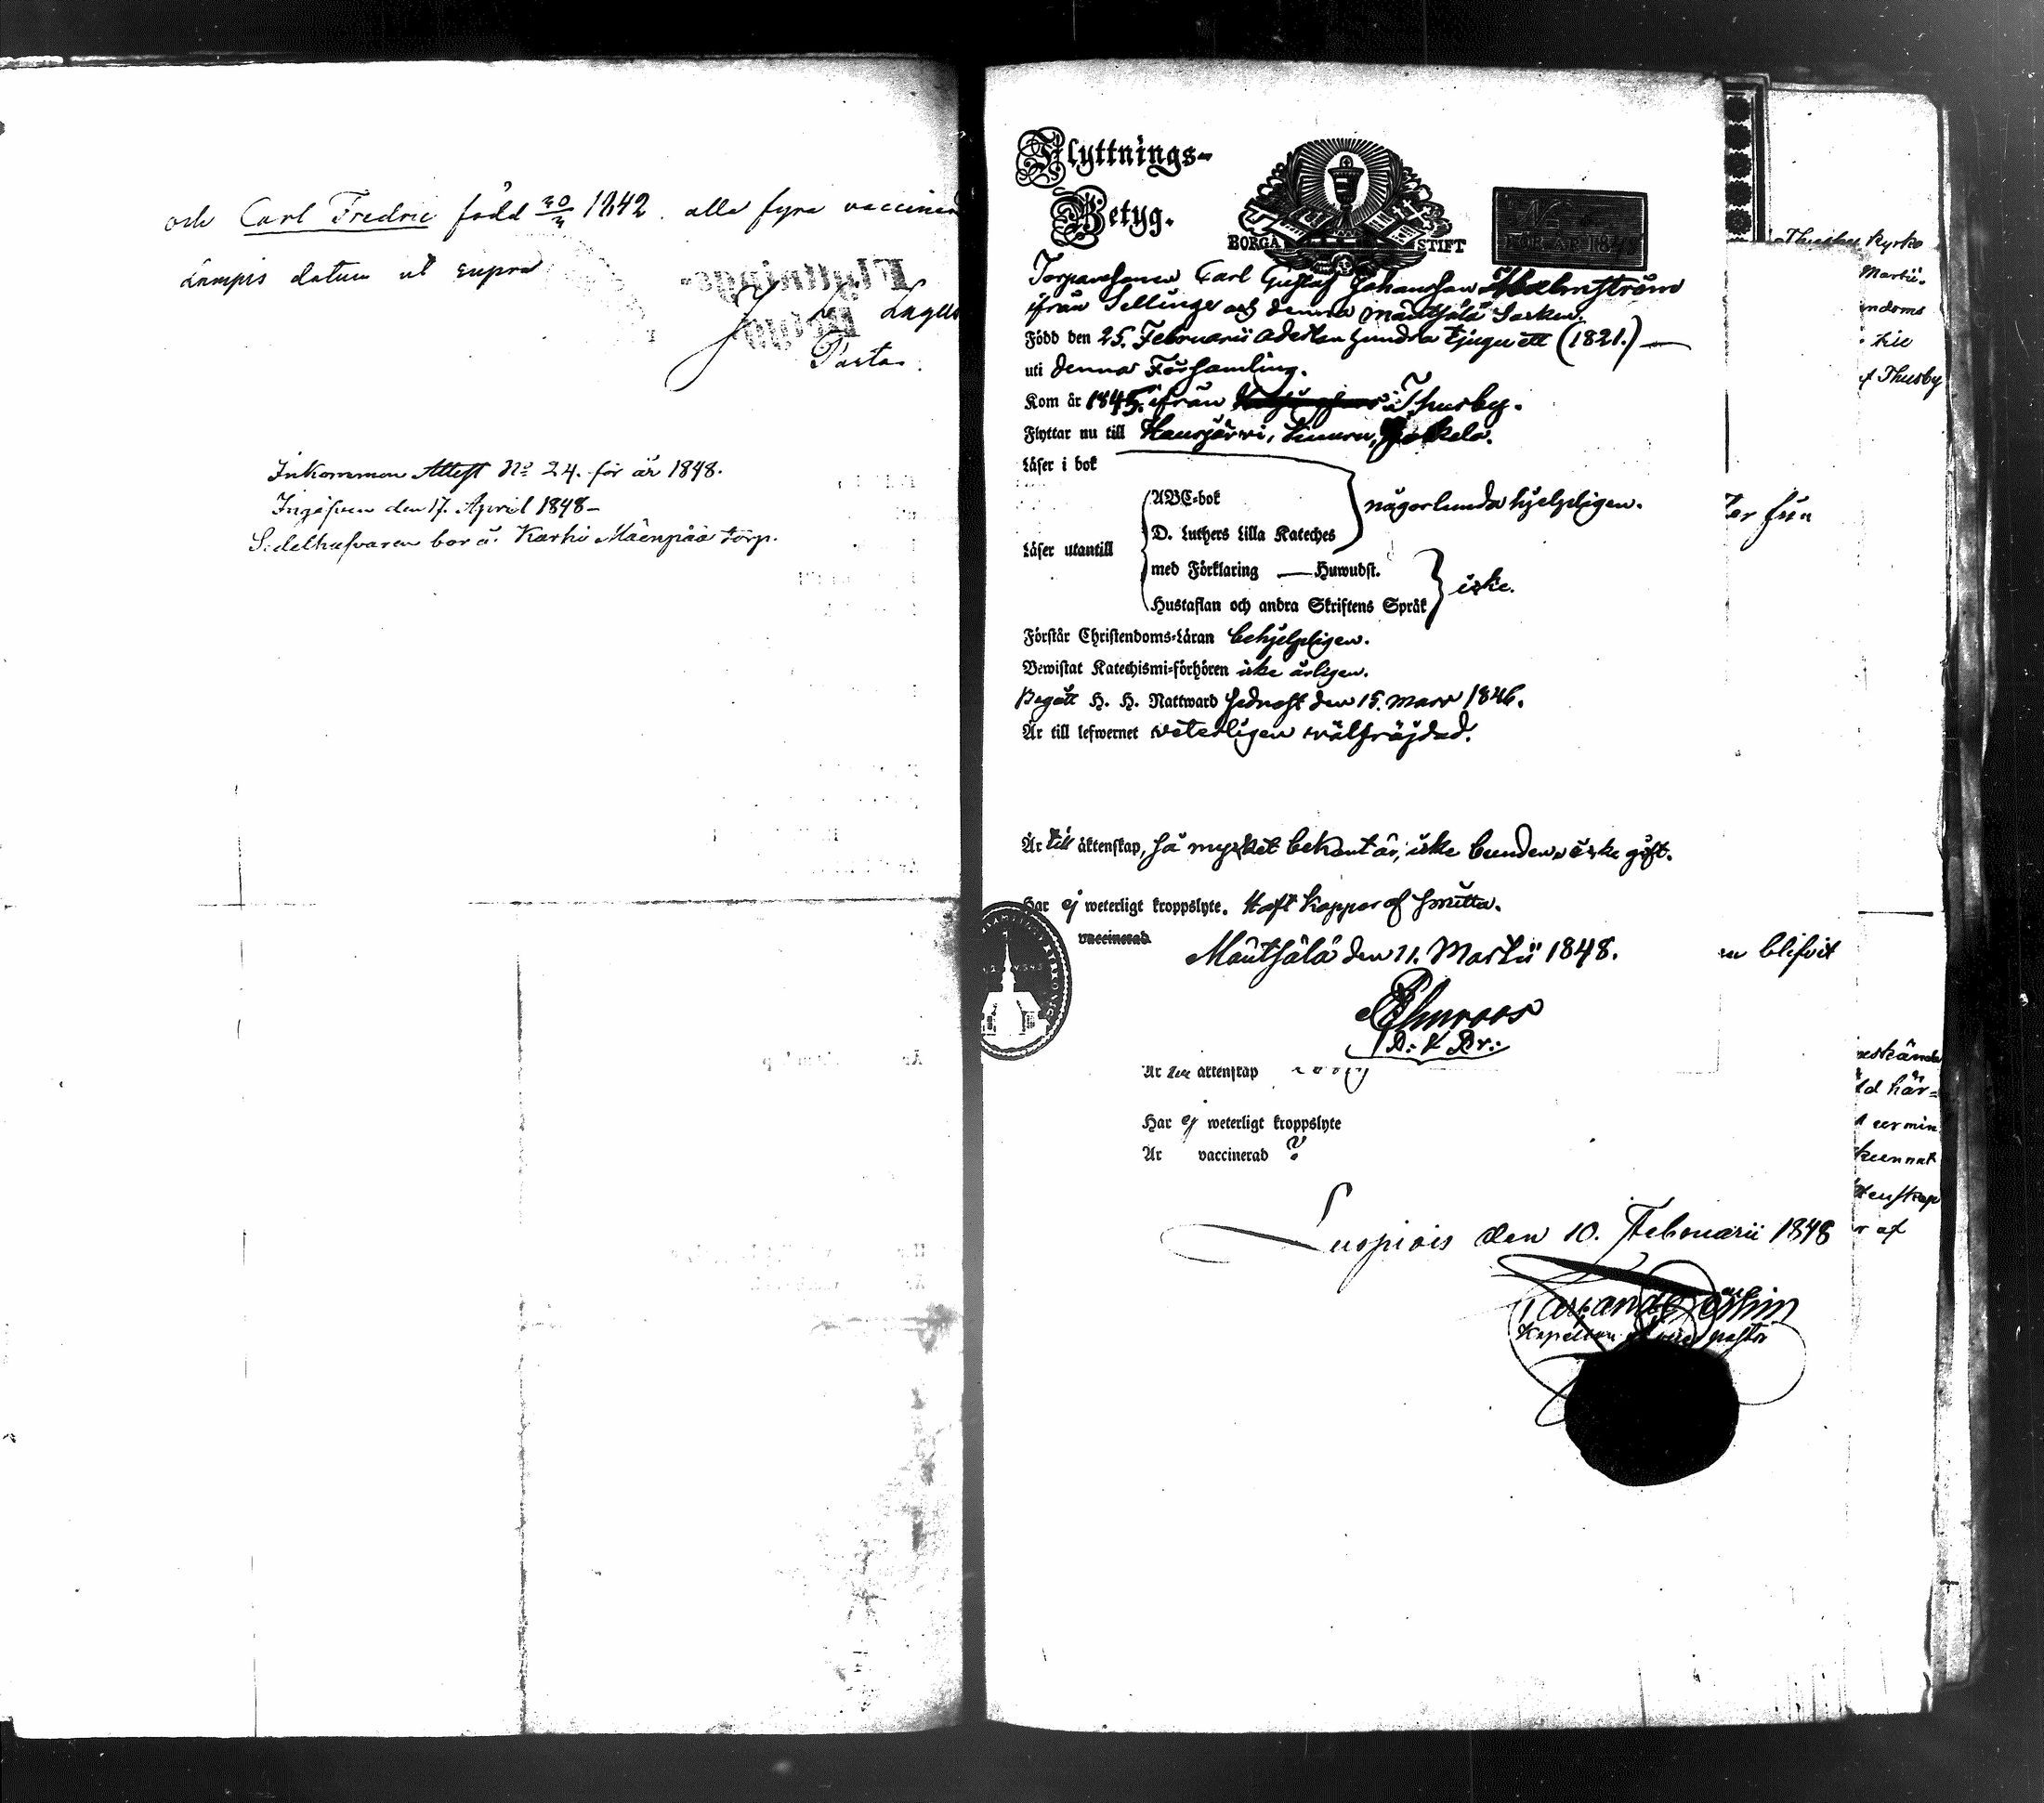 och Carl Fredric född 20/3 1842. alla fyra vaccinen
Lampis datum ut supra
Pastor
Inkommen Attest No 24. för år 1848.
Ingifven den 17. April 1848 –
Sedelhafvaren bor å Karhi Mäenpää torp.
Flyttnings-
Betyg.
BORGÅ STIFT
Torparesonen Carl Gustaf Johansson Malmström
ifrån Sellinge och denna Mäntsälä Socken.
Född den 25. Februarii aderton hundra tjugu ett (1821.) —
uti denna Församling.
Kom år 1845. ifrån Thusby.
Flyttar nu till Hausjärvi, Kuuru, Jokela.
Läser i bok
ABC-bok
D. Luthers Lilla Kateches
någorlunda hjelpligen.
Läser utantill
med Förklaring — Huwudst.
Hustaflan och andra Skriftens Språk
icke.
Förstår Christendoms-Läran behjelpligen.
Bewistat Katechismi-förhören icke årligen.
Begått H. H. Nattward sednast den 15. Mars 1846.
Är till lefwernet veterligen välfräjdad.
Är till äktenskap, så mycket bekant är, icke bunden, icke gift.
Har ej weterligt kroppslyte. Haft koppor af smitta.
vaccinerad
Mäntsälä den 11. Martii 1848.
Är äktenskap
Har ej weterligt kroppslyte
Är vaccinerad ?
Luopiois den 10. Februarii 1848
Kapellan pastor
Thusby Kyrko
Martii.
f Thusby
blifvit
d här=
kunnat
r af